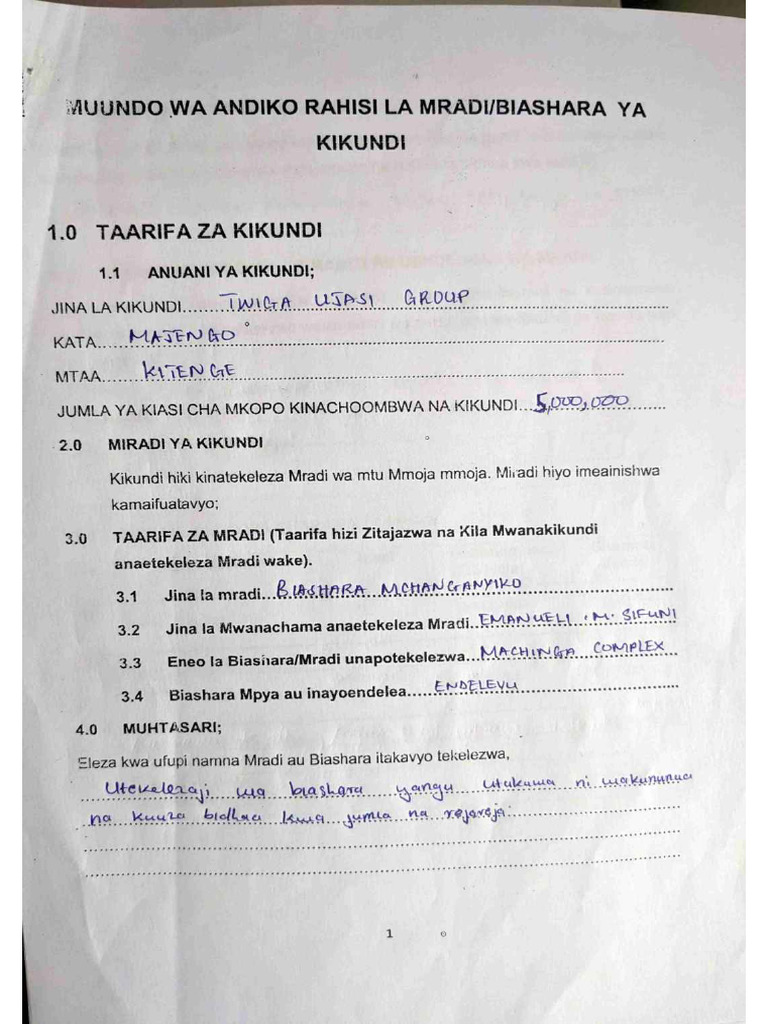 MUUNDO WA ANDIKO RAHISI LA MRADI/BIASHARA YA
KIKUNDI
1.0 TAARIFA ZA KIKUNDI
1.1 ANUANI YA KIKUNDI;
JINA LA KIKUNDI....TWIGA UJASI GROUP....
KATA....MAJENGO....
MTAA....KITENGE....
JUMLA YA KIASI CHA MKOPO KINACHOOMBWA NA KIKUNDI....5,000,000....
2.0 MIRADI YA KIKUNDI
Kikundi hiki kinatekeleza Mradi wa mtu Mmoja mmoja. Miradi hiyo imeainishwa
kamaifuatavyo;
3.0 TAARIFA ZA MRADI (Taarifa hizi Zitajazwa na Kila Mwanakikundi
anaetekeleza Mradi wake).
3.1 Jina la mradi....BIASHARA MCHANGANYIKO....
3.2 Jina la Mwanachama anaetekeleza Mradi....EMANUELI .M. SIFUNI
3.3 Eneo la Biashara/Mradi unapotekelezwa....MACHINGA COMPLEX
3.4 Biashara Mpya au inayoendelea....ENDELEVU....
4.0 MUHTASARI;
Eleza kwa ufupi namna Mradi au Biashara itakavyo tekelezwa,
Utekelezaji wa biashara yangu utakuwa ni wakununua
na kuuza bidhaa kwa jumla na rejareja.
1